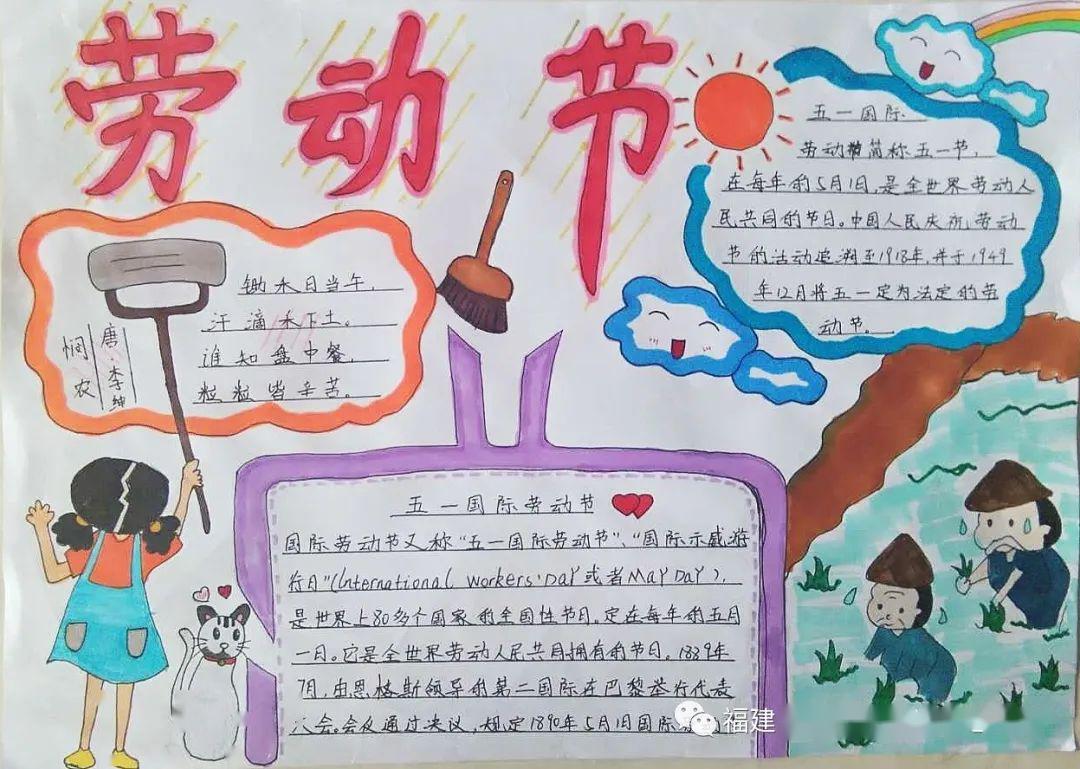 劳动节
五一国际
劳动节简称五一节,
在每年的5月1日,是全世界劳动人
民共同的节日。中国人民庆祝劳动
节的活动追溯至1918年,并于1949
年12月将五一定为法定的劳
动节。
锄禾日当午,
汗滴禾下土。
谁知盘中餐,
粒粒皆辛苦。
悯农
唐·李绅
五一国际劳动节
国际劳动节又称"五一国际劳动节"、"国际示威游
行日"(International workers'DAY或者MAY DAY),
是世界上80多个国家的全国性节日。定在每年的五月
一日。它是全世界劳动人民共同拥有的节日。1889年
7月,由恩格斯领导的第二国际在巴黎举行代表
大会。会议通过决议,规定1890年5月1日国际
福建